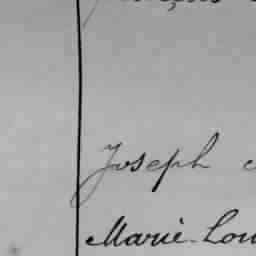 Joseph
Marie-Lou